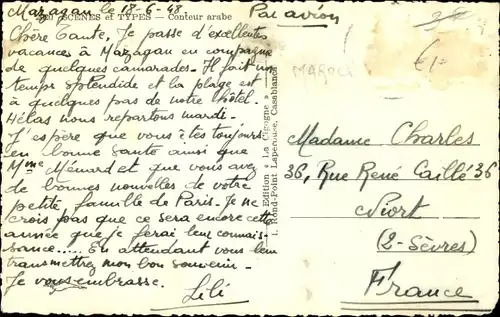 Mazagan le 18-6-48
SCÈNES et TYPES — Conteur arabe
Par avion
Chère Tante, Je passe d'excellentes
vacances à Mazagan en compagnie
de quelques camarades. Il fait un
temps splendide et la plage est
à quelques pas de notre hôtel.
Hélas nous repartons mardi.
J'espère que vous êtes toujours
en bonne santé ainsi que
Mme Ménard et que vous avez
de bonnes nouvelles de votre
petite famille de Paris. Je ne
crois pas que ce sera encore cette
année que je ferai leur connais-
sance..... En attendant vous leur
transmettrez mon bon souvenir.
Je vous embrasse.
Lili
Edition « La Cigogne »
1, Rond-Point Laperouse, Casablanca
MAROC
€1=
Madame Charles
36, Rue René Caillé 36
Niort
(2-Sèvres)
France